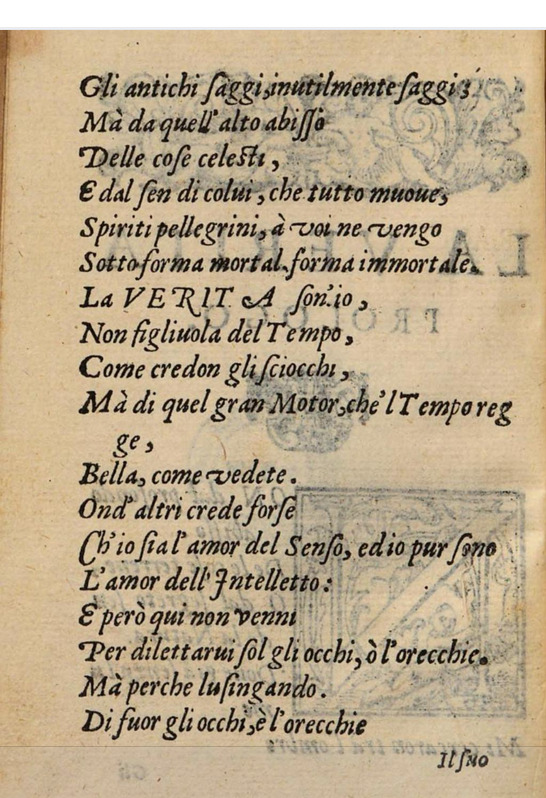 Gli antichi ſaggi, inutilmente ſaggi;
Mà da quell'alto abiſſo
Delle coſe celesti,
E dal ſen di colui, che tutto muoue,
Spiriti pellegrini, à voi ne vengo
Sotto forma mortal, forma immortale.
La VERITA son'io,
Non figliuola del Tempo,
Come credon gli ſciocchi,
Mà di quel gran Motor, che'l Tempo reg
ge,
Bella, come vedete.
Ond'altri crede forſe
Ch'io ſia l'amor del Senſo, ed io pur ſono
L'amor dell'Intelletto:
E però qui non venni
Per dilettarui ſol gli occhi, ò l'orecchie.
Mà perche luſingando.
Di fuor gli occhi, è l'orecchie
Il ſuo